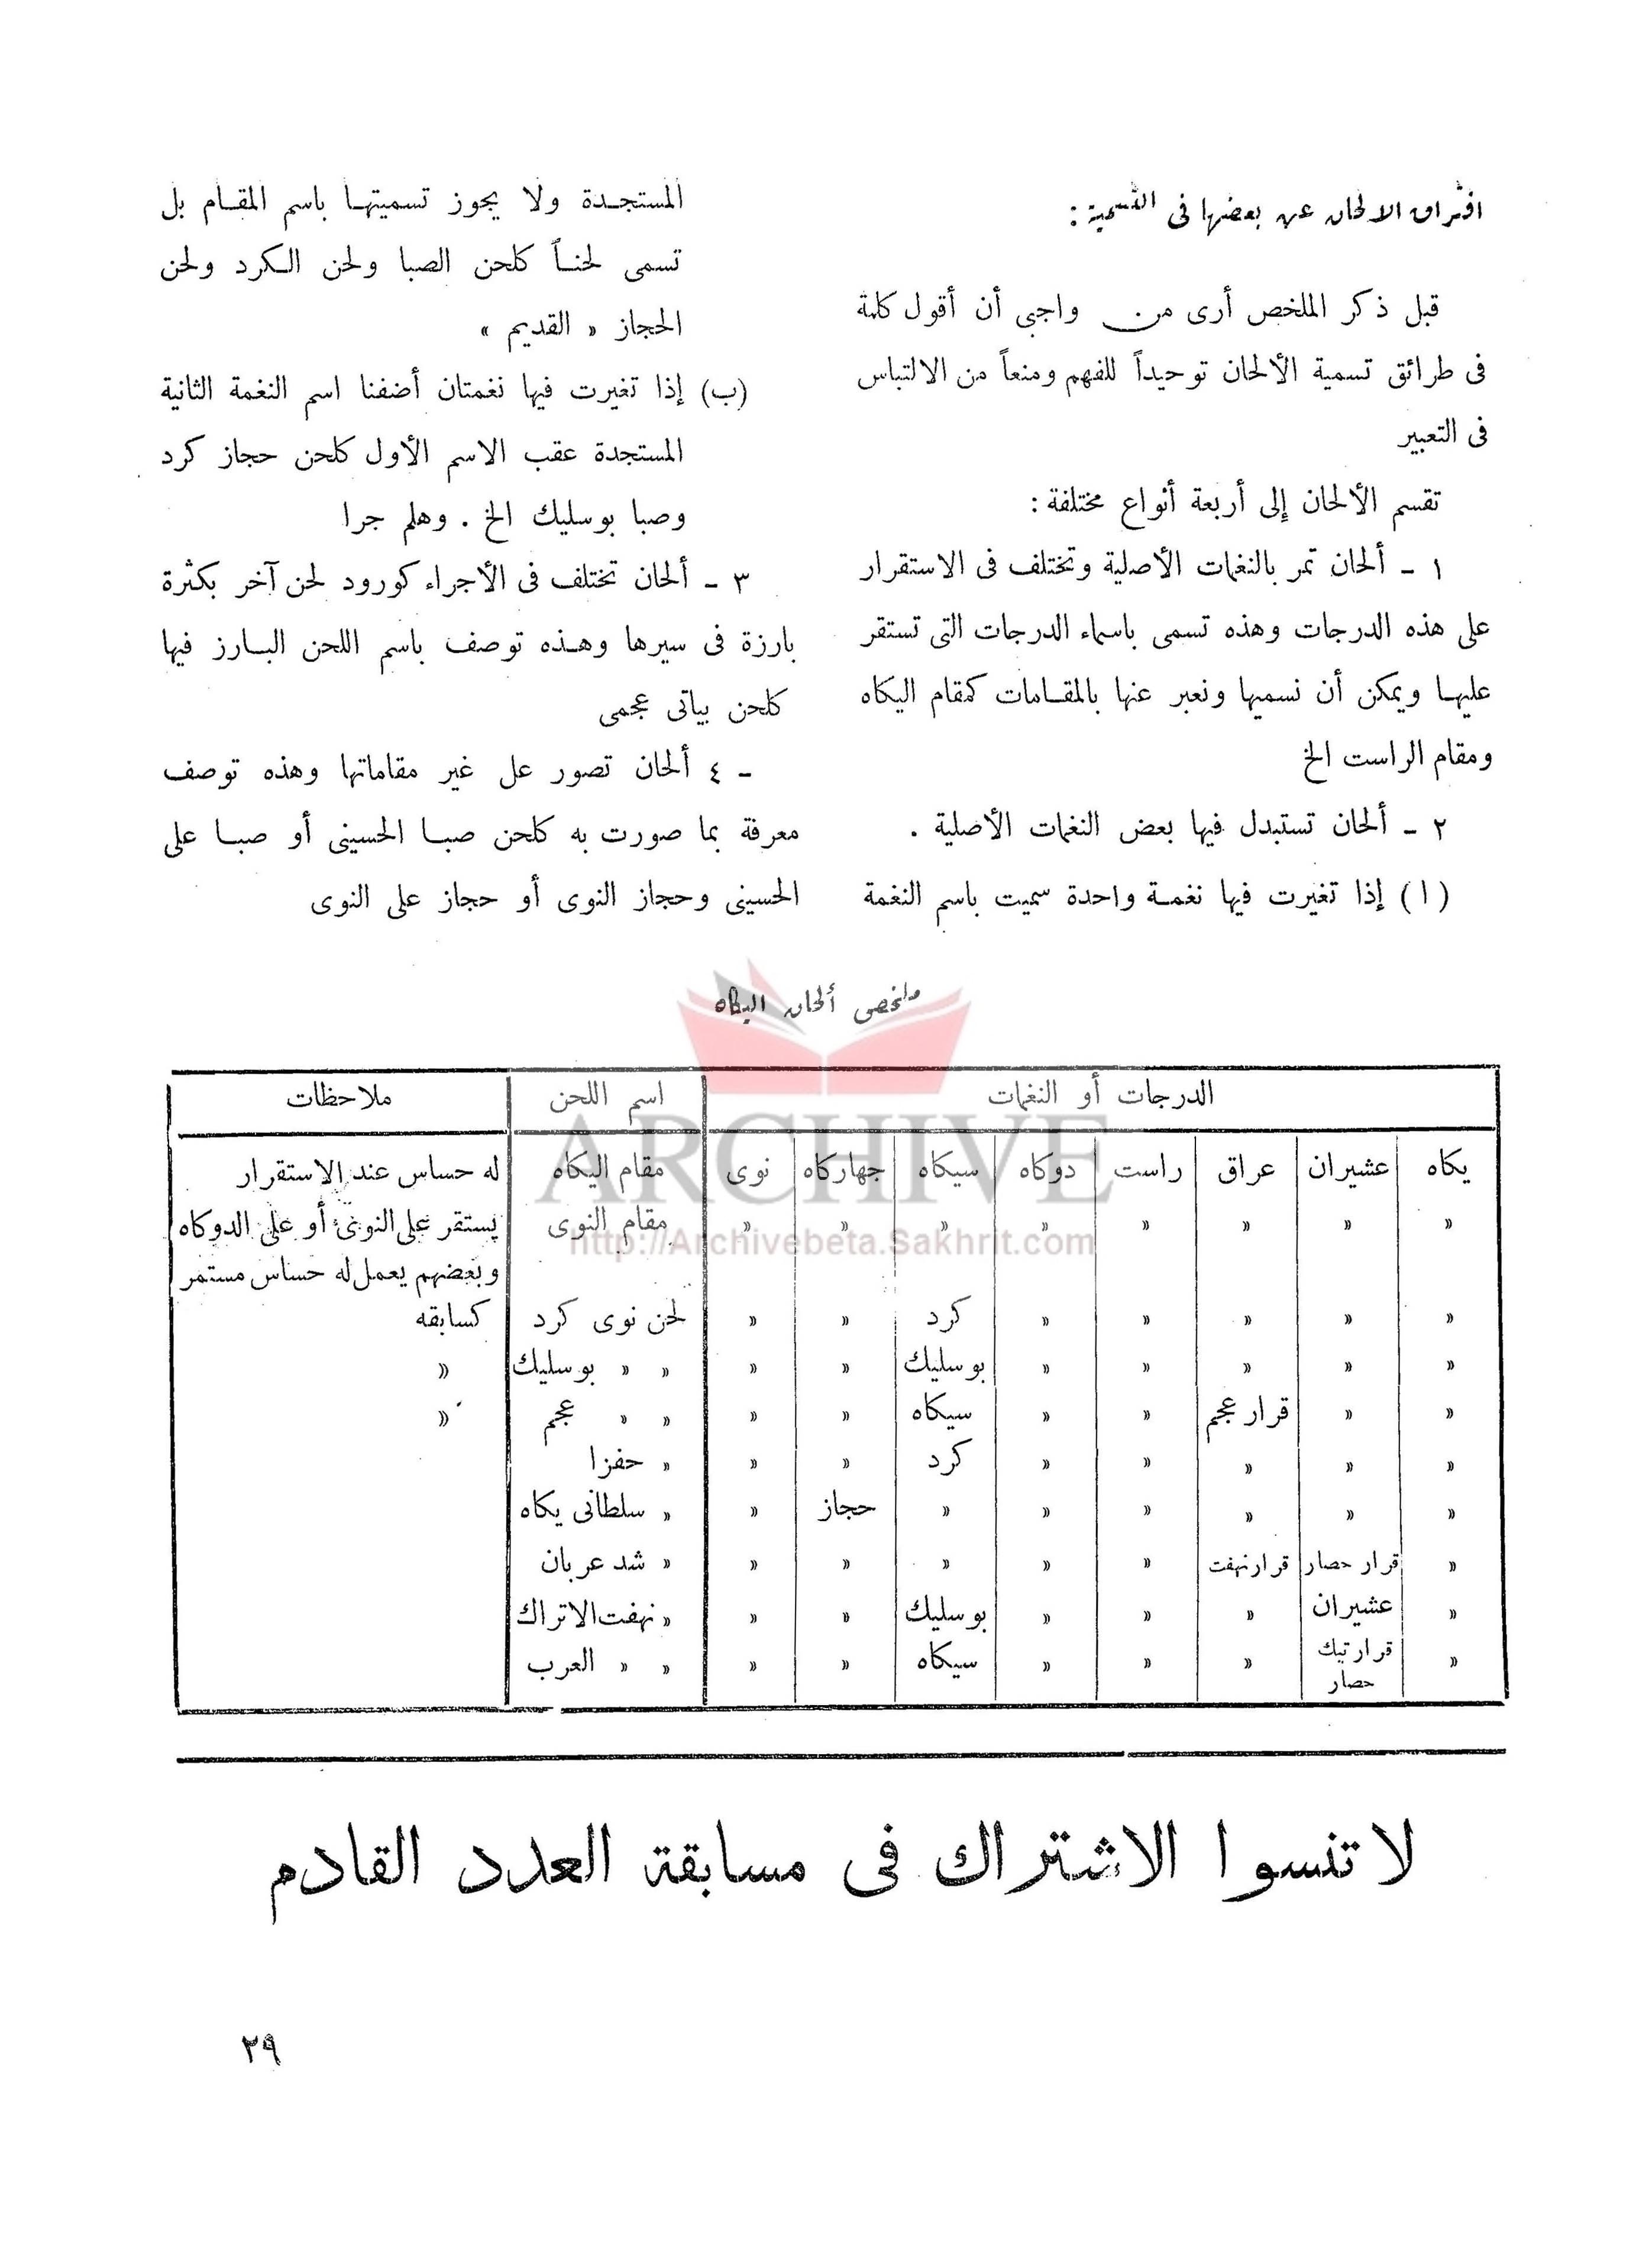 افتراق الالحان عن بعضها فى التسمية :
قبل ذكر الملخص أرى من واجبى أن أقول كلمة
فى طرائق تسمية الألحان توحيداً للفهم ومنعاً من الالتباس
فى التعبير
تقسم الألحان إلى أربعة أنواع مختلفة :
١ ـ ألحان تمر بالنغمات الأصلية وتختلف فى الاستقرار
على هذه الدرجات وهذه تسمى باسماء الدرجات التى تستقر
عليهـا ويمكن أن نسميها ونعبر عنها بالمقـامات كمقام اليكاه
ومقام الراست الخ
٢ ـ ألحان تستبدل فيها بعض النغمات الأصلية .
( ا ) إذا تغيرت فيها نغمـة واحدة سميت باسم النغمة
المستجـدة ولا يجوز تسميتهـا باسم المقـام بل
تسمى لحنـاً كلحن الصبا ولحن الـكرد ولحن
الحجاز « القديم »
(ب) إذا تغيرت فيها نغمتان أضفنا اسم النغمة الثانية
المستجدة عقب الاسم الأول كلحن حجاز كرد
وصبا بوسليك الخ . وهلم جرا
٣ ـ ألحان تختلف فى الأجراء كورود لحن آخر بكثرة
بارزة فى سيرها وهـذه توصف باسم اللحن البـارز فيها
كلحن بياتى عجمى
ـ ٤ ألحان تصور عل غير مقاماتها وهذه توصف
معرفة بما صورت به كلحن صبـا الحسينى أو صبـا على
الحسينى وحجاز النوى أو حجاز على النوى
ملخص ألحان اليكاه
الدرجات أو النغمات اسم اللحن ملاحظات
يكاه عشيران عراق راست دوكاه سيكاه جهاركاه نوى مقام اليكاه له حساس عند الاستقرار
« « « « « « « « مقام النوى يستقر على النوى أو على الدوكاه
وبعضهم يعمل له حساس مستمر
« « « « « كرد « « لحن نوى كرد كسابقه
« « « « « بوسليك « « « « بوسليك «
« « قرار عجم « « سيكاه « « « « عجم «
« « « « « كرد « « « حفزا
« « « « « « حجاز « « سلطانى يكاه
« قرار حصار قرار نهفت « « « « « « شد عربان
« عشيران « « « بوسليك « « « نهفت الاتراك
« قرار تيك حصار « « « سيكاه « « « « العرب
لا تنسوا الاشتراك فى مسابقة العدد القادم
٢٩
ARCHIVE
http://Archivebeta.Sakhrit.com